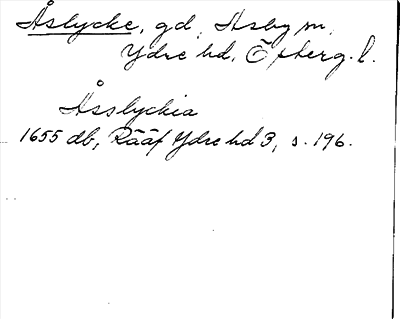 Åslycke, gd, Asby sn,
Ydre hd, Östergl.
Åsslyckia
1655 db, Rääf Ydre hd 3, s. 196.